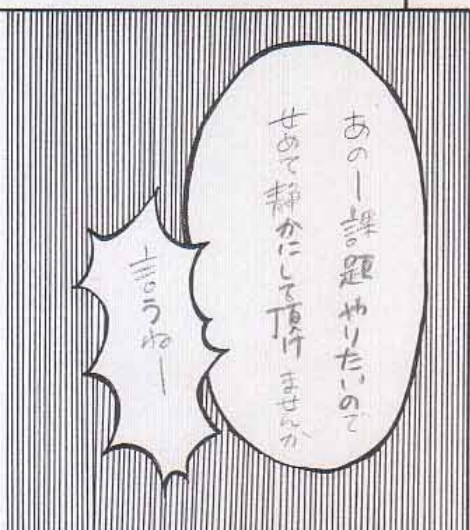 あのー課題やりたいので
せめて静かにして頂けませんか
言うねー